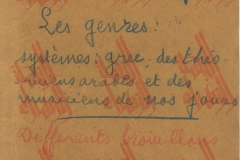 Les genres :
systèmes : grec, des théo-
riciens arabes et des
musiciens de nos jours
Différents brouillons